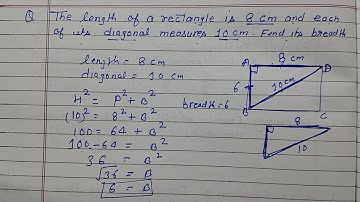 Q The length of a rectangle is 8 cm and each
of its diagonal measures 10 cm. Find its breadth
length = 8 cm
diagonal = 10 cm
H² = P² + B²
(10)² = 8² + B²
100 = 64 + B²
100-64 = B²
36 = B²
√36 = B
6 = B
8 cm
A
D
6
10cm
breadth=6
B
C
8
10